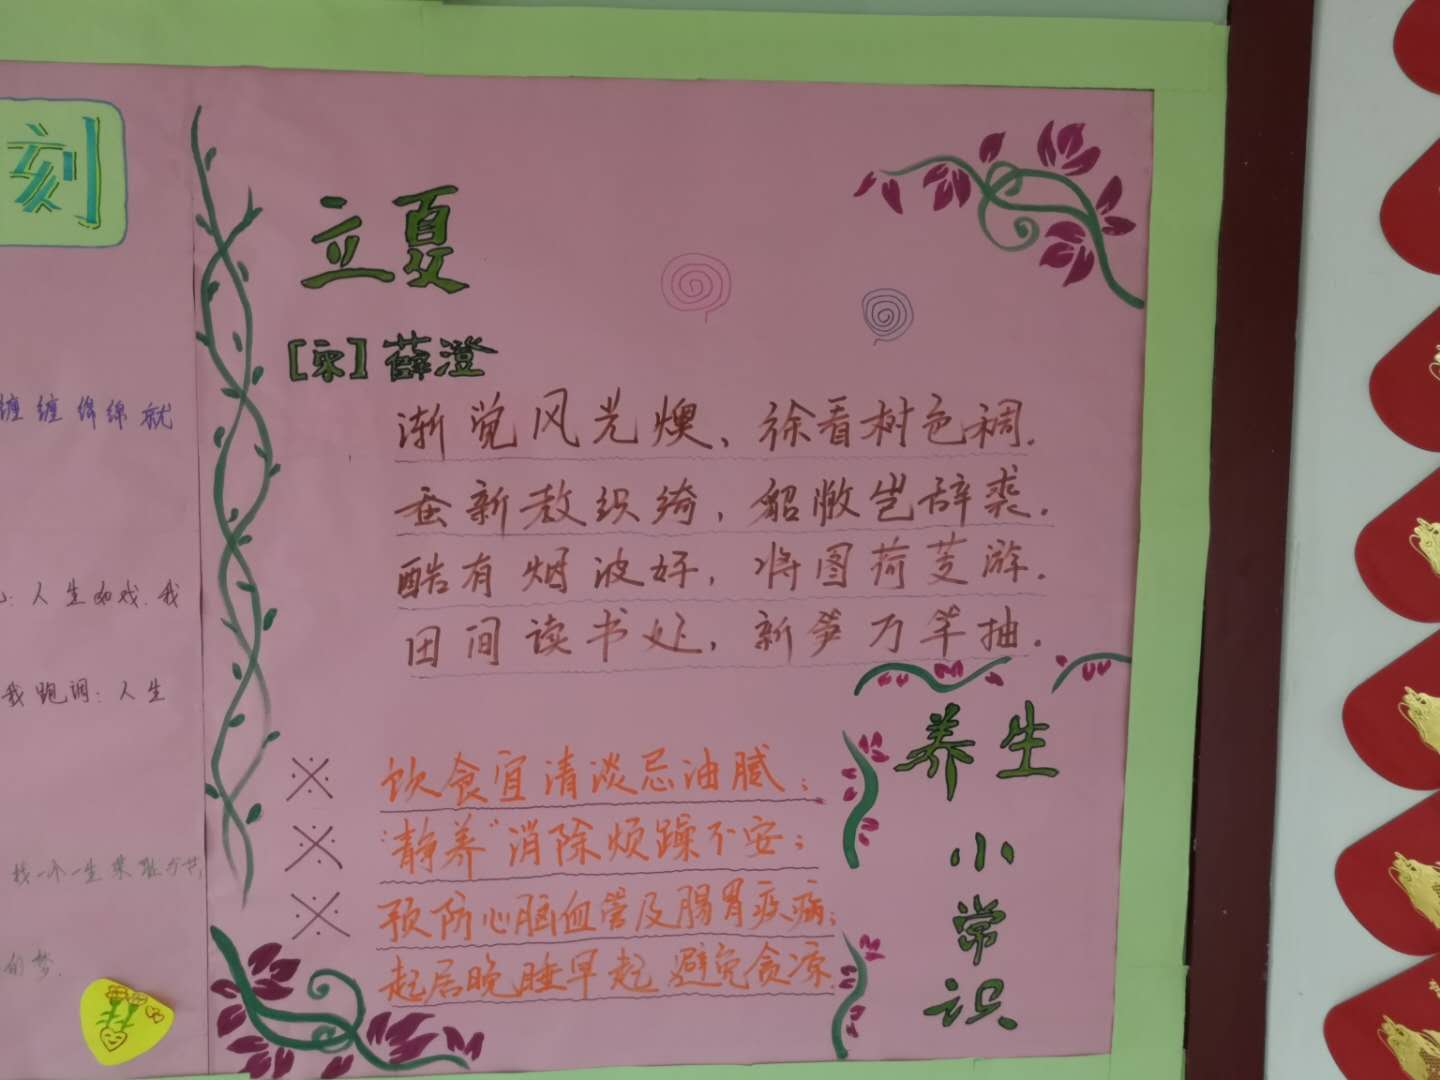 刻
缠缠绵绵就
人生如戏.我
我跑调:人生
找一个一生
的梦.
立夏
【宋】薛澄
渐觉风光燠、徐看树色稠.
蚕新教织绮,貂敝岂辞裘.
酷有烟波好,将图荷芰游.
田间读书处,新笋万竿抽.
养生
小常识
※ 饮食宜清淡忌油腻;
※ “静养”消除烦躁不安;
※ 预防心脑血管及肠胃疾病;
起居晚睡早起 避免贪凉.